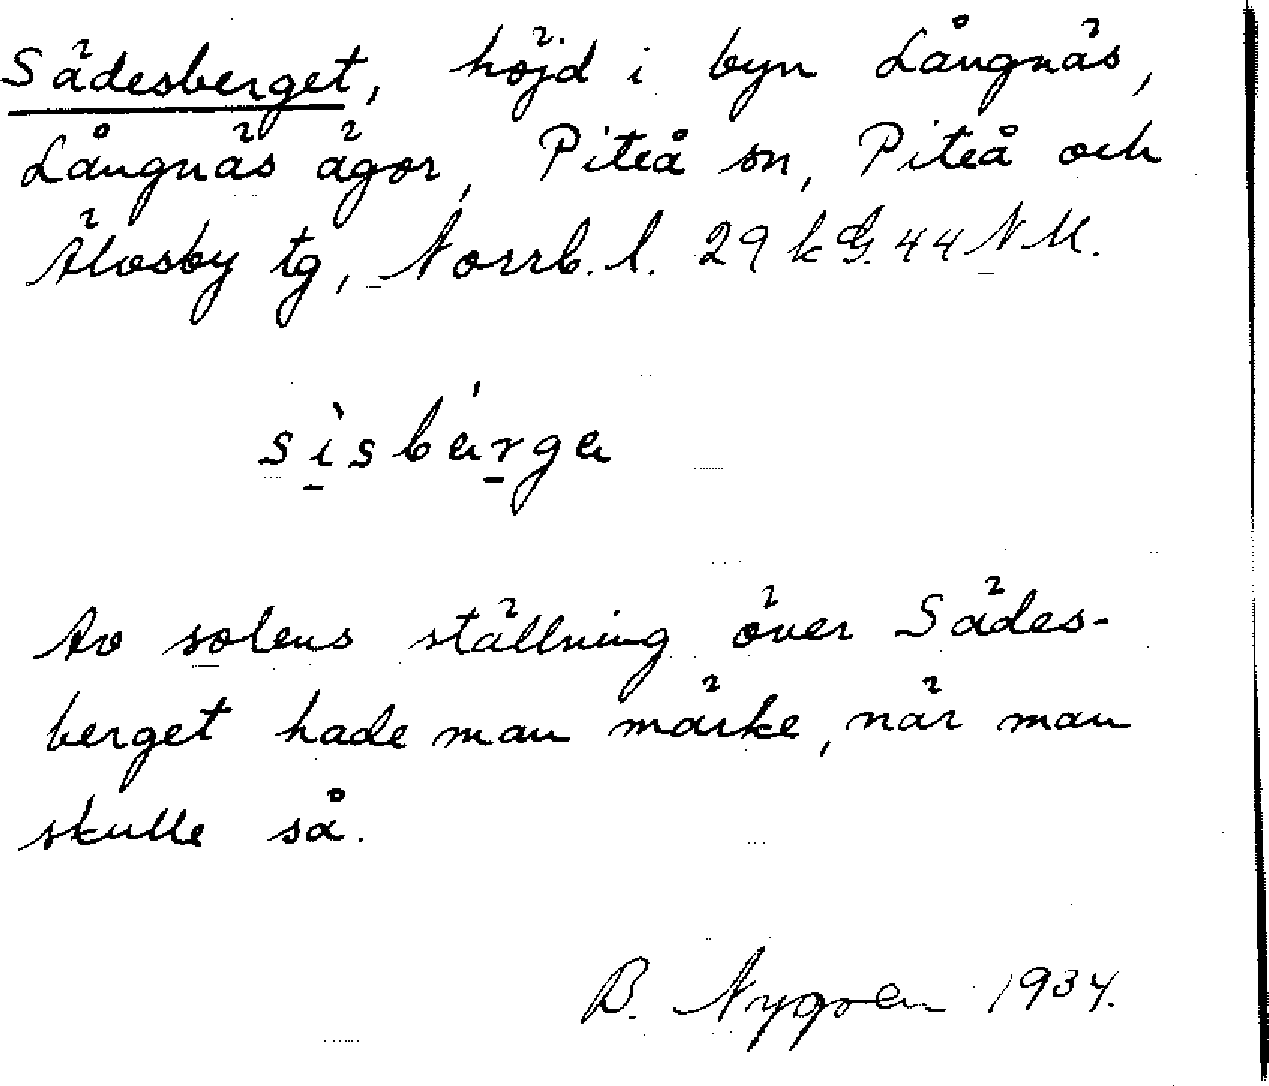 Sädesberget, höjd i byn Långnäs,
Långnäs ägor, Piteå sn, Piteå och
Älvsby tg, Norrb. l. 29 k G. 44 N M.
sìsbárga
Av solens ställning över Sädes-
berget hade man märke, när man
skulle så.
B. Nygren 1934.